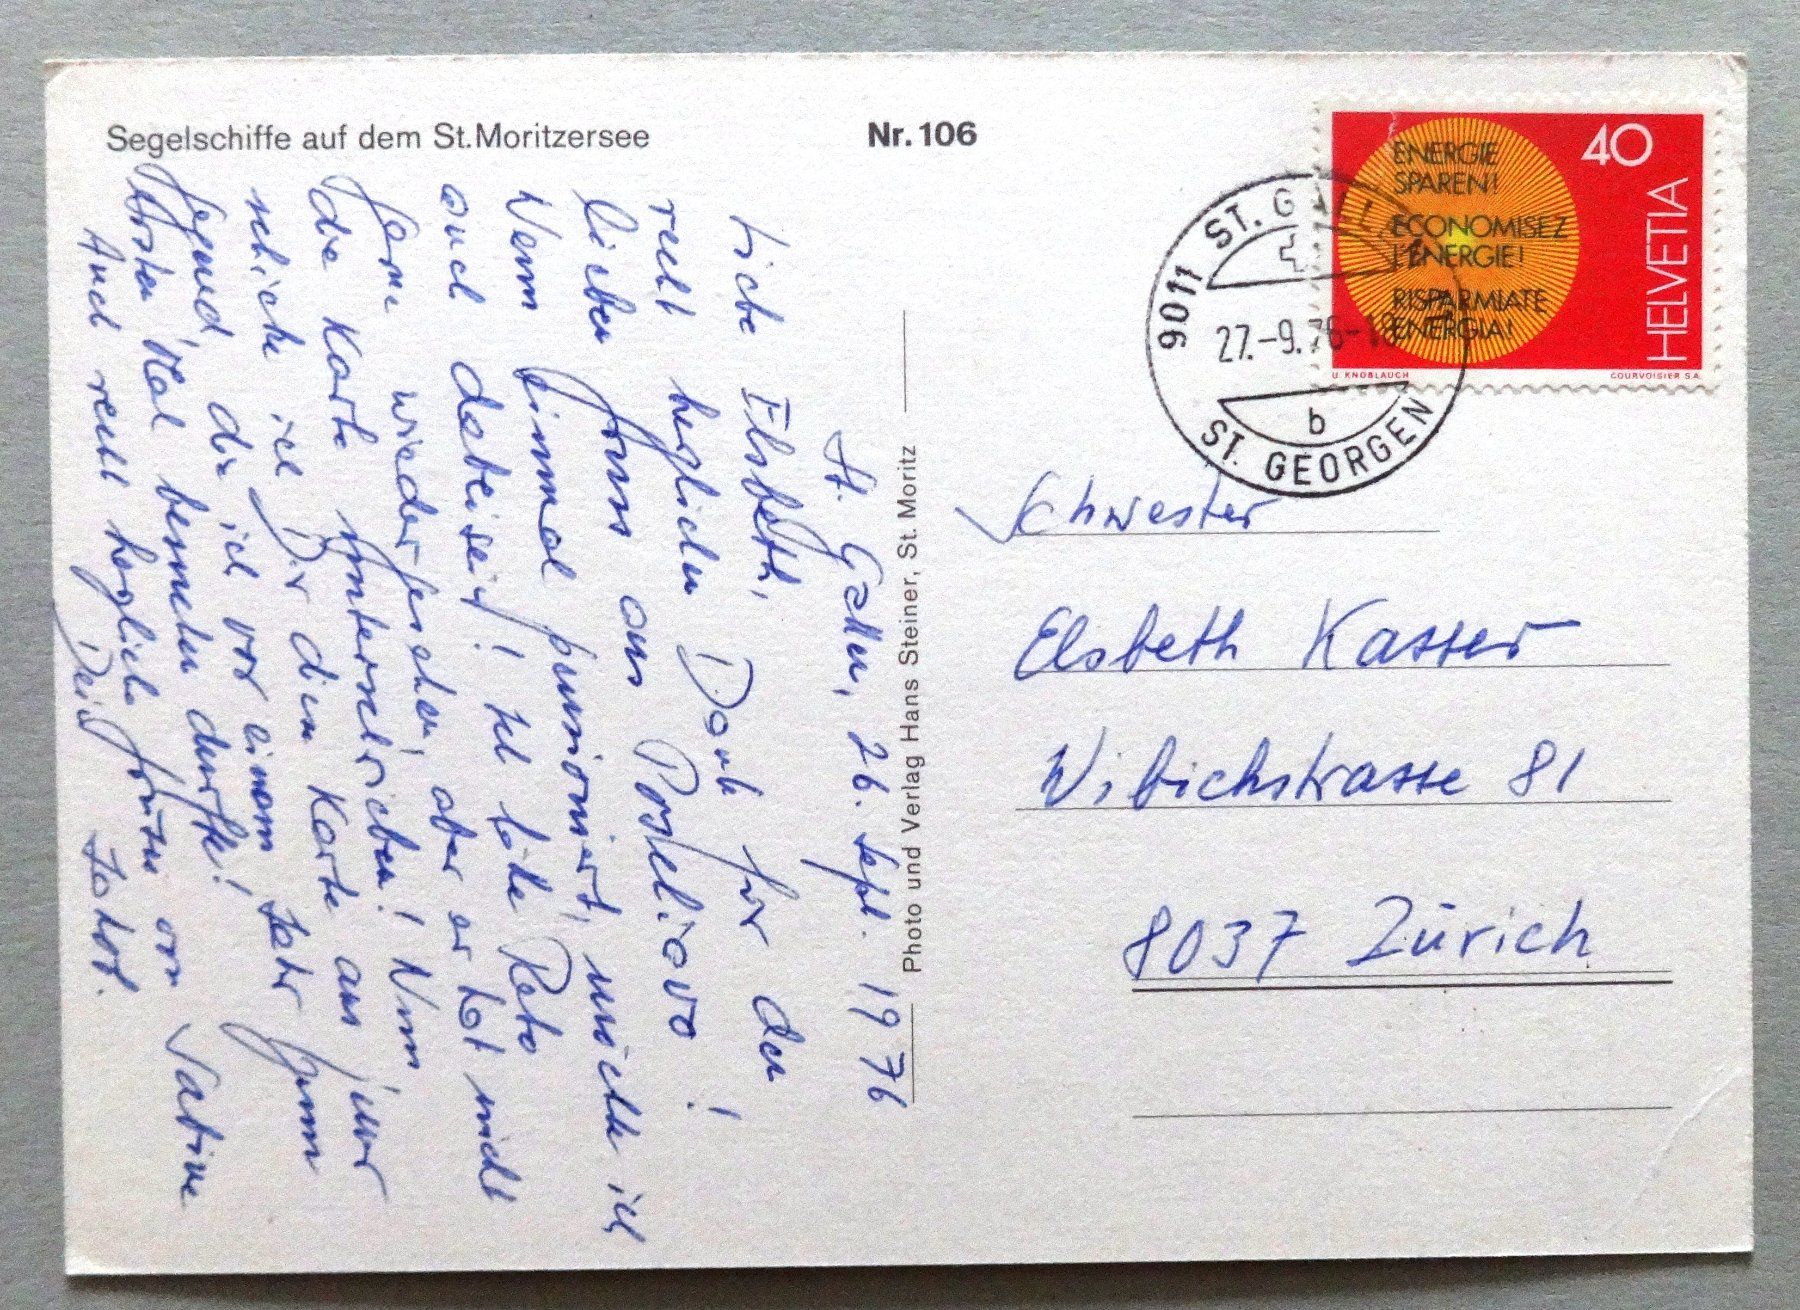 Segelschiffe auf dem St. Moritzersee
Nr. 106
St. Gallen, 26. Sept. 1976
Liebe Elsbeth,
recht herzlichen Dank für den
lieben Gruss aus Poschiavo!
Wenn einmal pensioniert, möchte ich
auch dabei sein! Ich hätte Reto
gerne wieder gesehen, aber er hat nicht
die Karte unterschrieben! Nun
schicke ich Dir eine Karte aus jener
Gegend, die ich vor einem Jahr zum
ersten Mal besuchen durfte!
Auch recht herzliche Grüsse von Sabine
Dein
Photo und Verlag Hans Steiner, St. Moritz
ENERGIE
SPAREN!
ECONOMISEZ
L'ENERGIE!
RISPARMIATE
ENERGIA!
40
HELVETIA
U. KNOBLAUCH
COURVOISIER S.A.
9011 ST. GALLEN
27.-9.76-18
b
ST. GEORGEN
Schwester
Elsbeth Kasser
Wibichstrasse 81
8037 Zürich